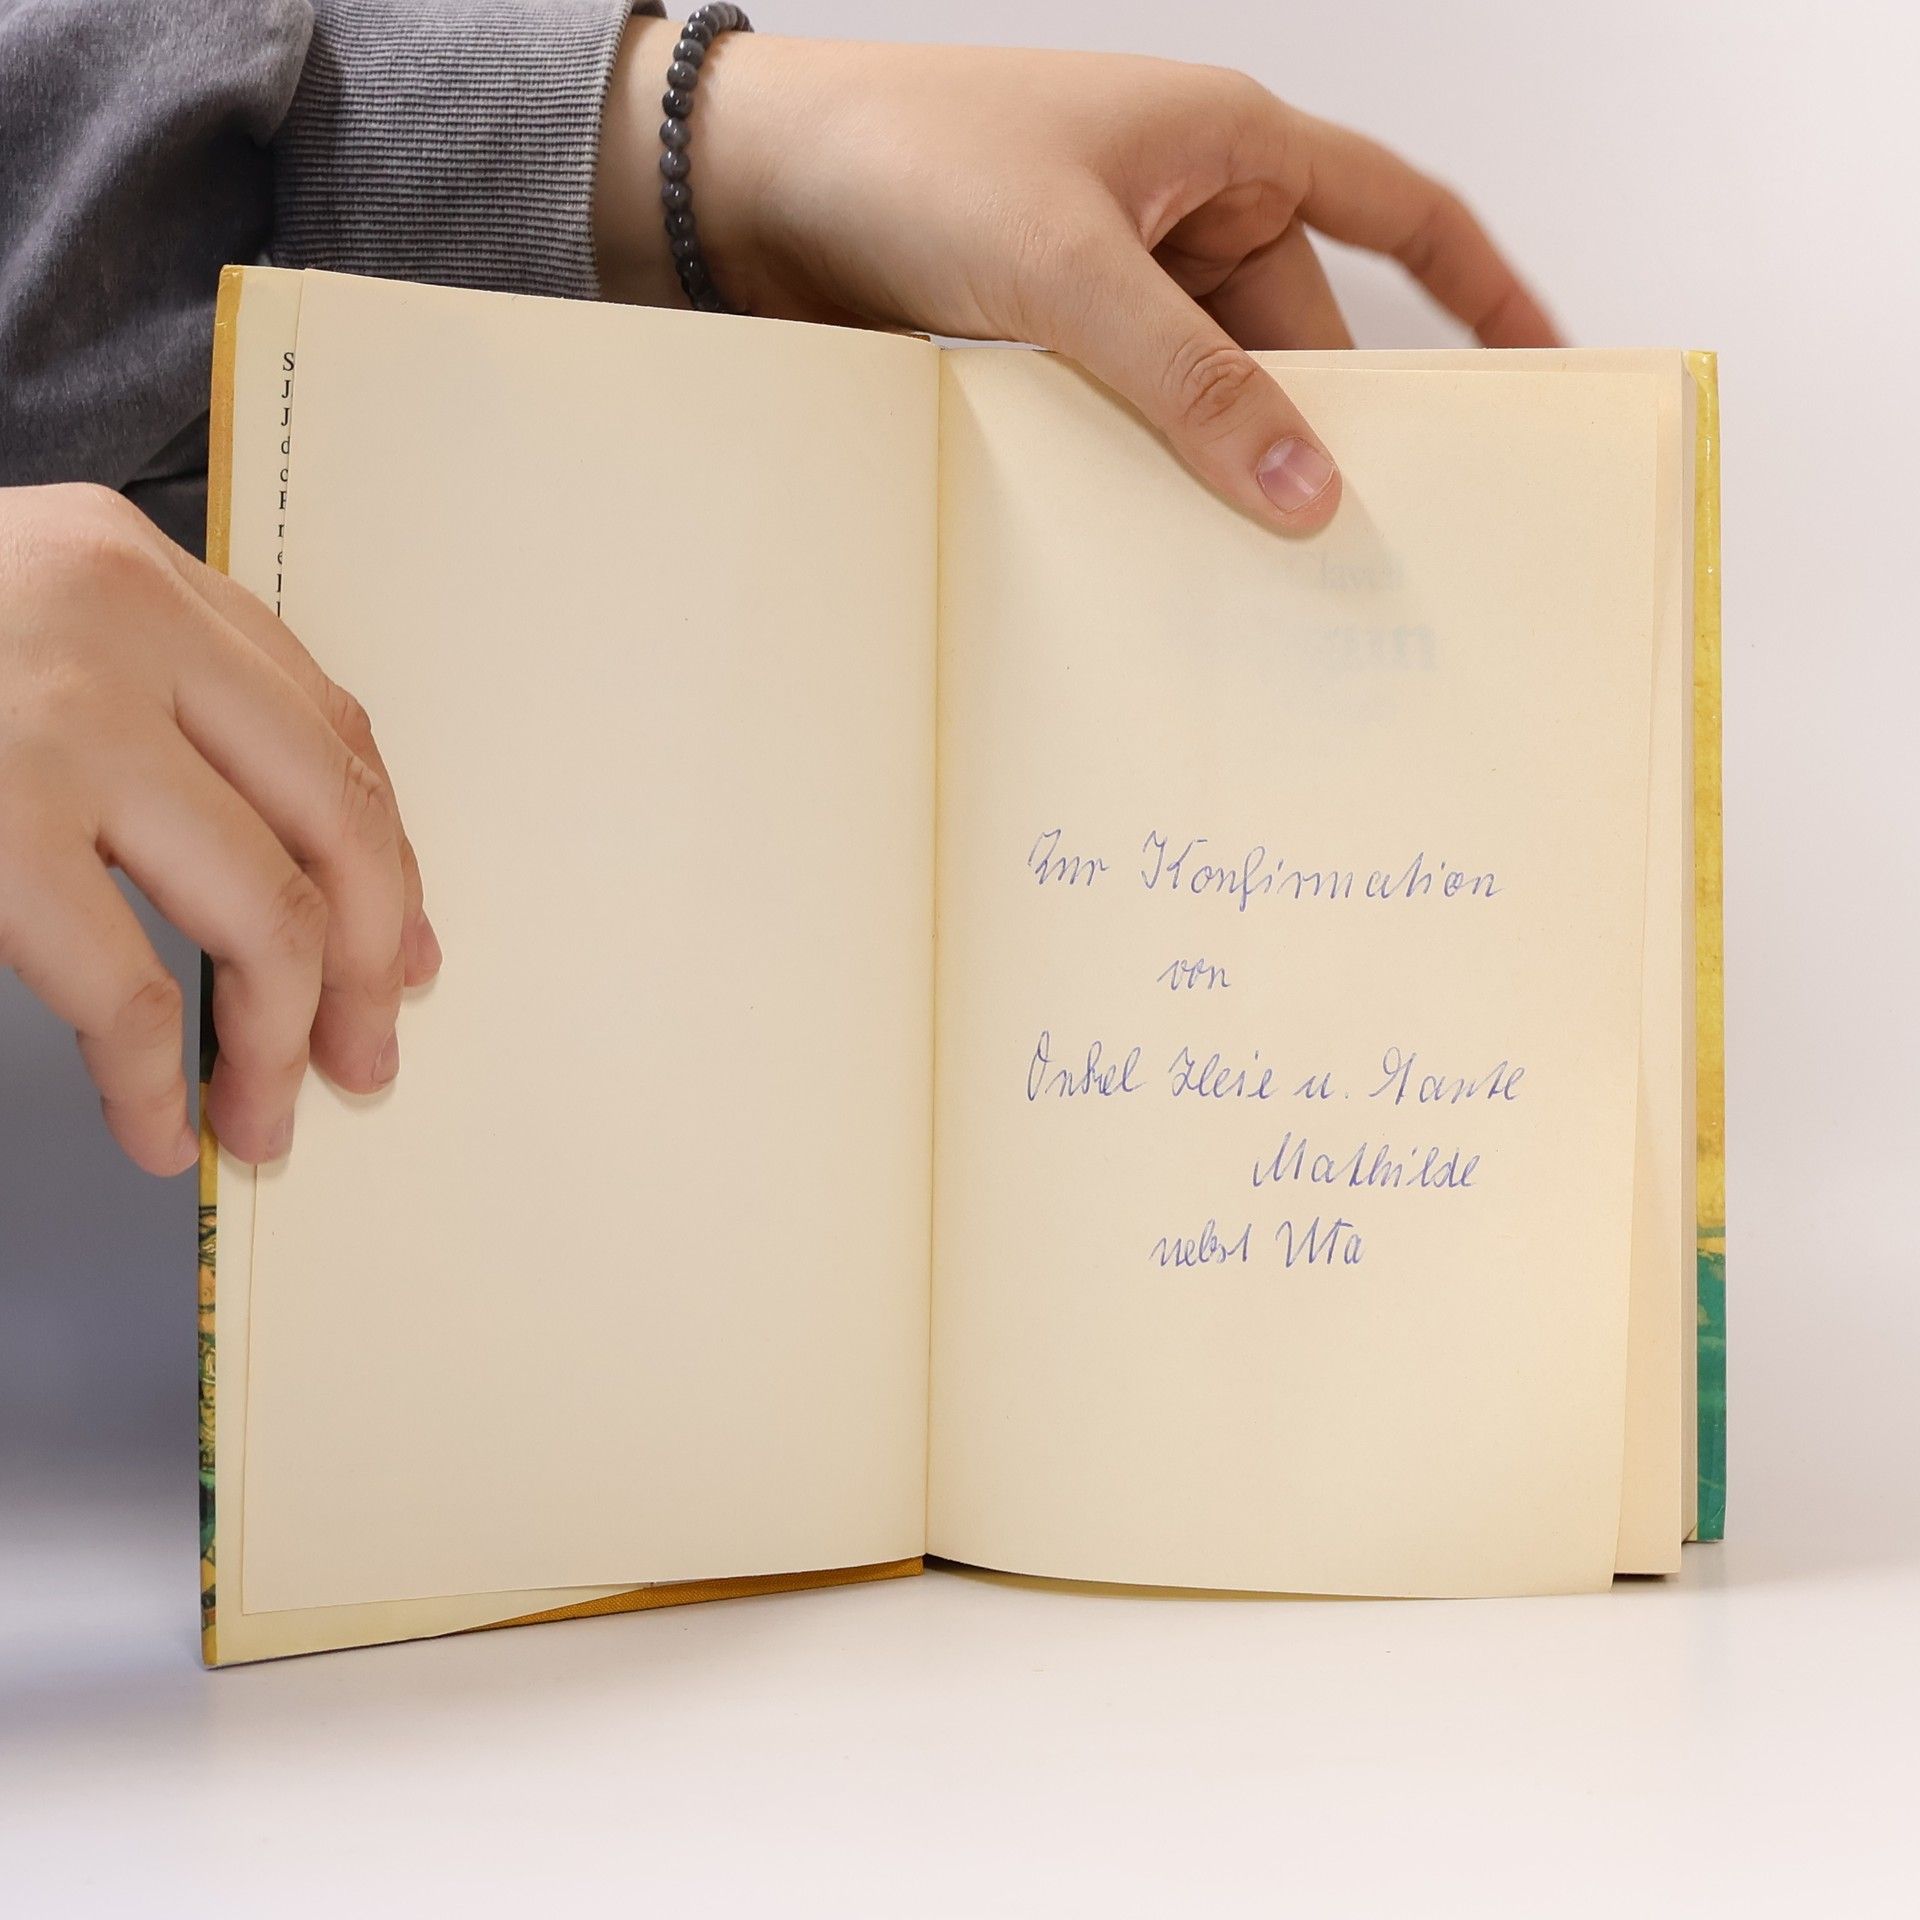 S
J
J
d
Zur Konfirmation
von
Onkel u. Tante
Mathilde
nebst Uta